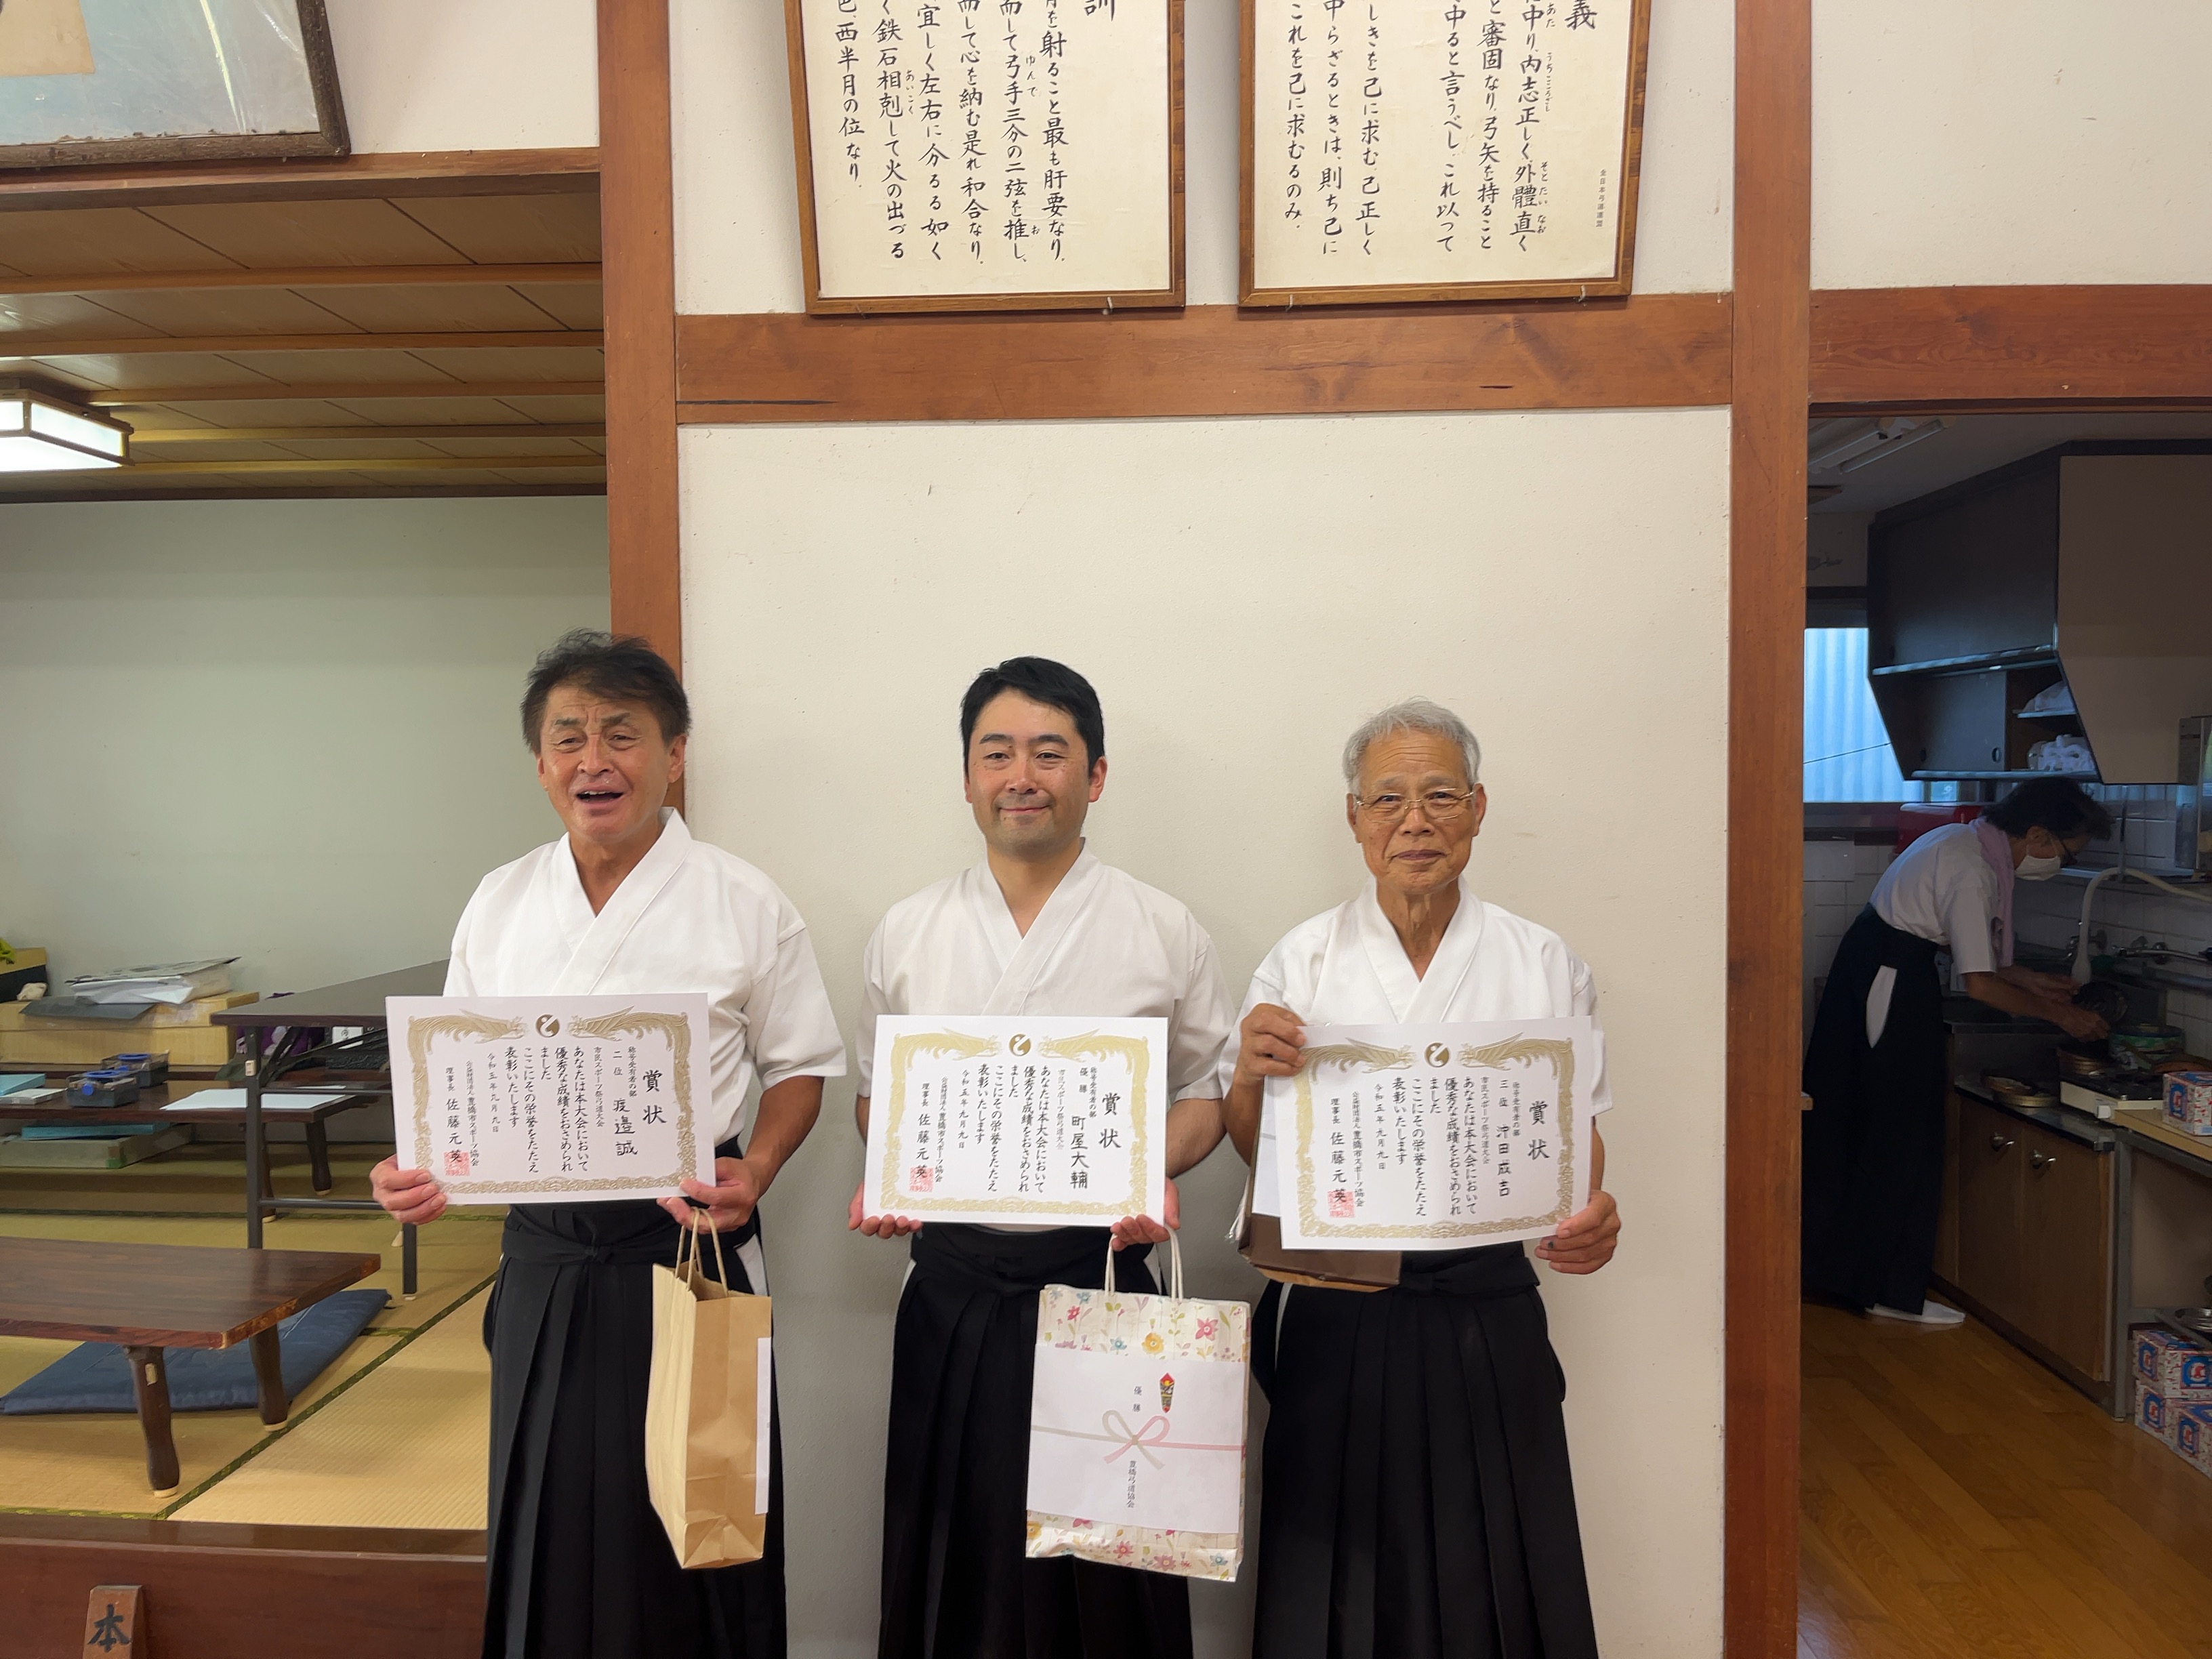 義
中り、内志正しく、外體直く
と審固なり、弓矢を持ること
中ると言うべし、これ以って
しきを己に求む、己正しく
中らざるときは、則ち己に
これを己に求むるのみ。
全日本弓道連盟
訓
を射ること最も肝要なり、
而して弓手三分の二弦を推し、
而して心を納む是れ和合なり、
宜しく左右に分るる如く
く鉄石相剋して火の出づる
西半月の位なり。
賞状
称号受有者の部
二位 渡邉誠
市民スポーツ祭弓道大会
あなたは本大会において
優秀な成績をおさめられ
ました
ここにその栄誉をたたえ
表彰いたします
令和五年九月九日
公益財団法人豊橋市スポーツ協会
理事長 佐藤元英
賞状
称号受有者の部
優勝 町屋大輔
市民スポーツ祭弓道大会
あなたは本大会において
優秀な成績をおさめられ
ました
ここにその栄誉をたたえ
表彰いたします
令和五年九月九日
公益財団法人豊橋市スポーツ協会
理事長 佐藤元英
賞状
称号受有者の部
三位 沖田成吉
市民スポーツ祭弓道大会
あなたは本大会において
優秀な成績をおさめられ
ました
ここにその栄誉をたたえ
表彰いたします
令和五年九月九日
公益財団法人豊橋市スポーツ協会
理事長 佐藤元英
優勝
豊橋弓道協会
本